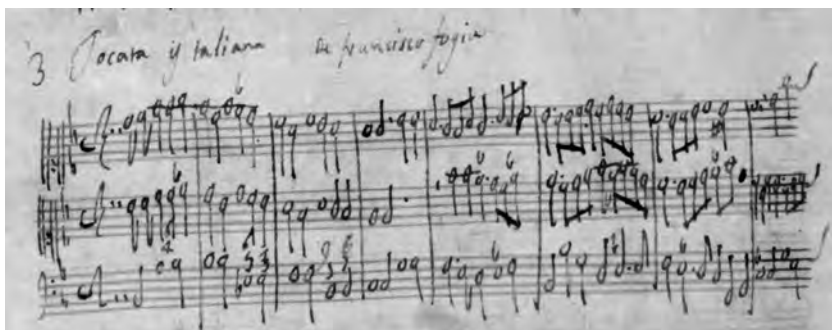 3 Tocata ytaliana de francisco fogia